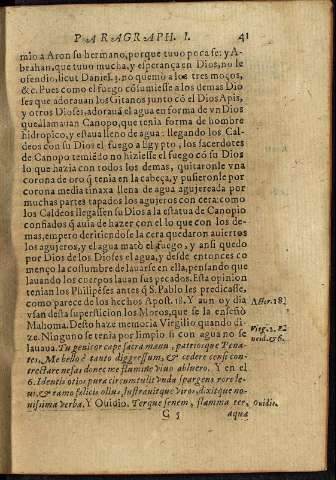 PARAGRAPH. I. 41
mio a Aron su hermano, porque tuuo poca fe: y A-
brahan, que tuuo mucha, y esperança en Dios, no le
ofendio, sicut Daniel. 3. no quemò a los tres moços,
&c. Pues como el fuego cõsumiesse a los demas Dio
ses que adorauan los Gitanos junto cõ el Dios Apis,
y otros Dioses, adorauã el agua en forma de vn Dios
que llamauan Canopo, que tenia forma de hombre
hidropico, y estaua lleno de agua: llegando los Cal-
deos con su Dios el fuego a Egypto, los sacerdotes
de Canopo temiẽdo no hiziesse el fuego cõ su Dios
lo que hazia con todos los demas, quitaronle vna
corona de oro q̃ tenia en la cabeça, y pusieronle por
corona media tinaxa llena de agua agujereada por
muchas partes tapados los agujeros con cera: como
los Caldeos llegassen su Dios a la estatua de Canopio
confiados q̃ auia de hazer con el lo que con los de-
mas, empero derritiendose la cera quedaron auiertos
los agujeros, y el agua matò el fuego, y ansi quedo
por Dios de los Dioses el agua, y desde entonces co
menço la costumbre de lauarse en ella, pensando que
lauando los cuerpos lauan sus pecados. Esta opinion
tenian los Philipẽses antes q̃ S. Pablo les predicasse,
como parece de los hechos Apost. 18. Y aun oy dia
vsan desta supersticion los Moros, que se la enseñò
Mahoma. Desto haze memoria Virgilio quando di-
ze. Ninguno se tenia por limpio si con agua no se
lauaua. Tu genitor cape sacra manu, patriosque Pena-
tes, Me bello è tanto diggressum, & cedere censi con-
trectare nefas donec me flumine viuo abluero. Y en el
6. Identi otios pura circuntulit vnda spargens rore le-
ui, & ramo felicis oliuæ, lustrauitque viros, dixitque no-
uissima verba. Y Ouidio. Terque senem, flamma ter,
G 5 aqua
Actor. 18.
Virg. 2. Æ
neid. & 6.
Ouidio.